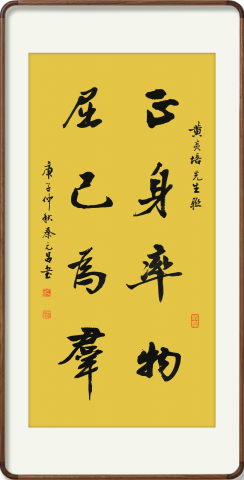 黄炎培先生聯
正身率物
屈己為羣
庚子仲秋秦元昌書